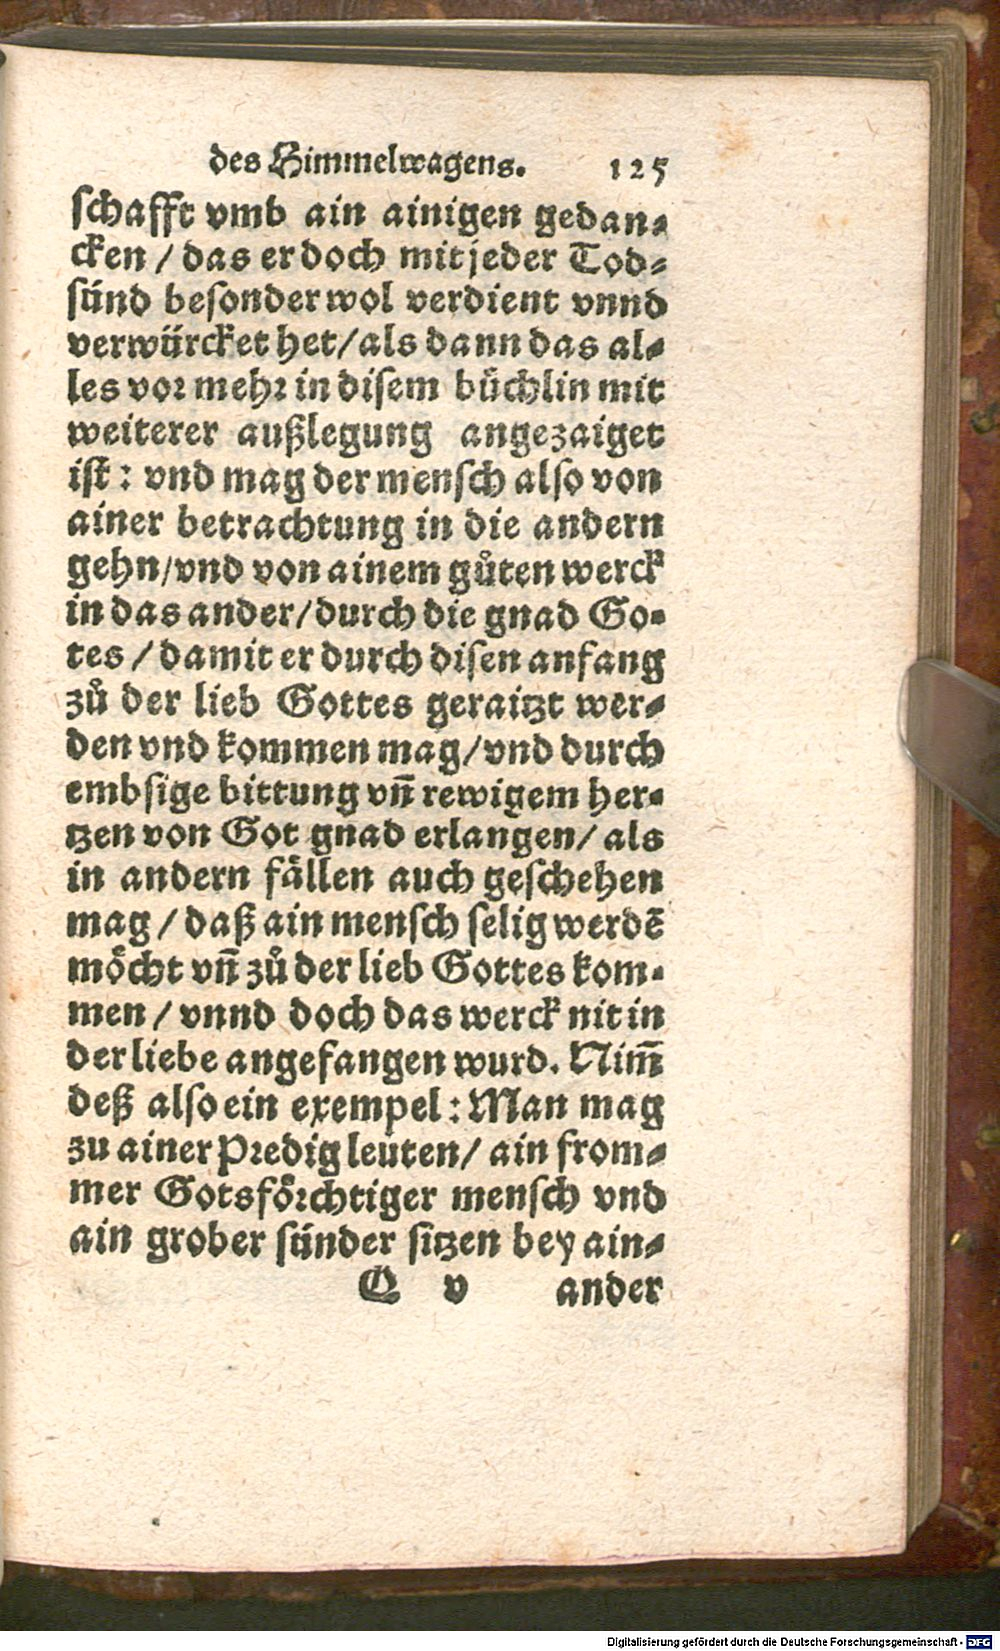 des Himmelwagens. 125
schafft vmb ain ainigen gedan⸗
cken / das er doch mit jeder Tod⸗
sünd besonder wol verdient vnnd
verwürcket het / als dann das al⸗
les vor mehr in disem büchlin mit
weiterer außlegung angezaiget
ist : vnd mag der mensch also von
ainer betrachtung in die andern
gehn / vnd von ainem gůten werck
in das ander / durch die gnad Go⸗
tes / damit er durch disen anfang
zů der lieb Gottes geraitzt wer⸗
den vnd kommen mag / vnd durch
embsige bittung vñ rewigem her⸗
tzen von Got gnad erlangen / als
in andern fällen auch geschehen
mag / daß ain mensch selig werdē
möcht vñ zů der lieb Gottes kom⸗
men / vnnd doch das werck nit in
der liebe angefangen wurd. Nim̄
deß also ein exempel : Man mag
zu ainer Predig leuten / ain from⸗
mer Gotsförchtiger mensch vnd
ain grober sünder sitzen bey ain⸗
Q v ander
Digitalisierung gefördert durch die Deutsche Forschungsgemeinschaft - DFG